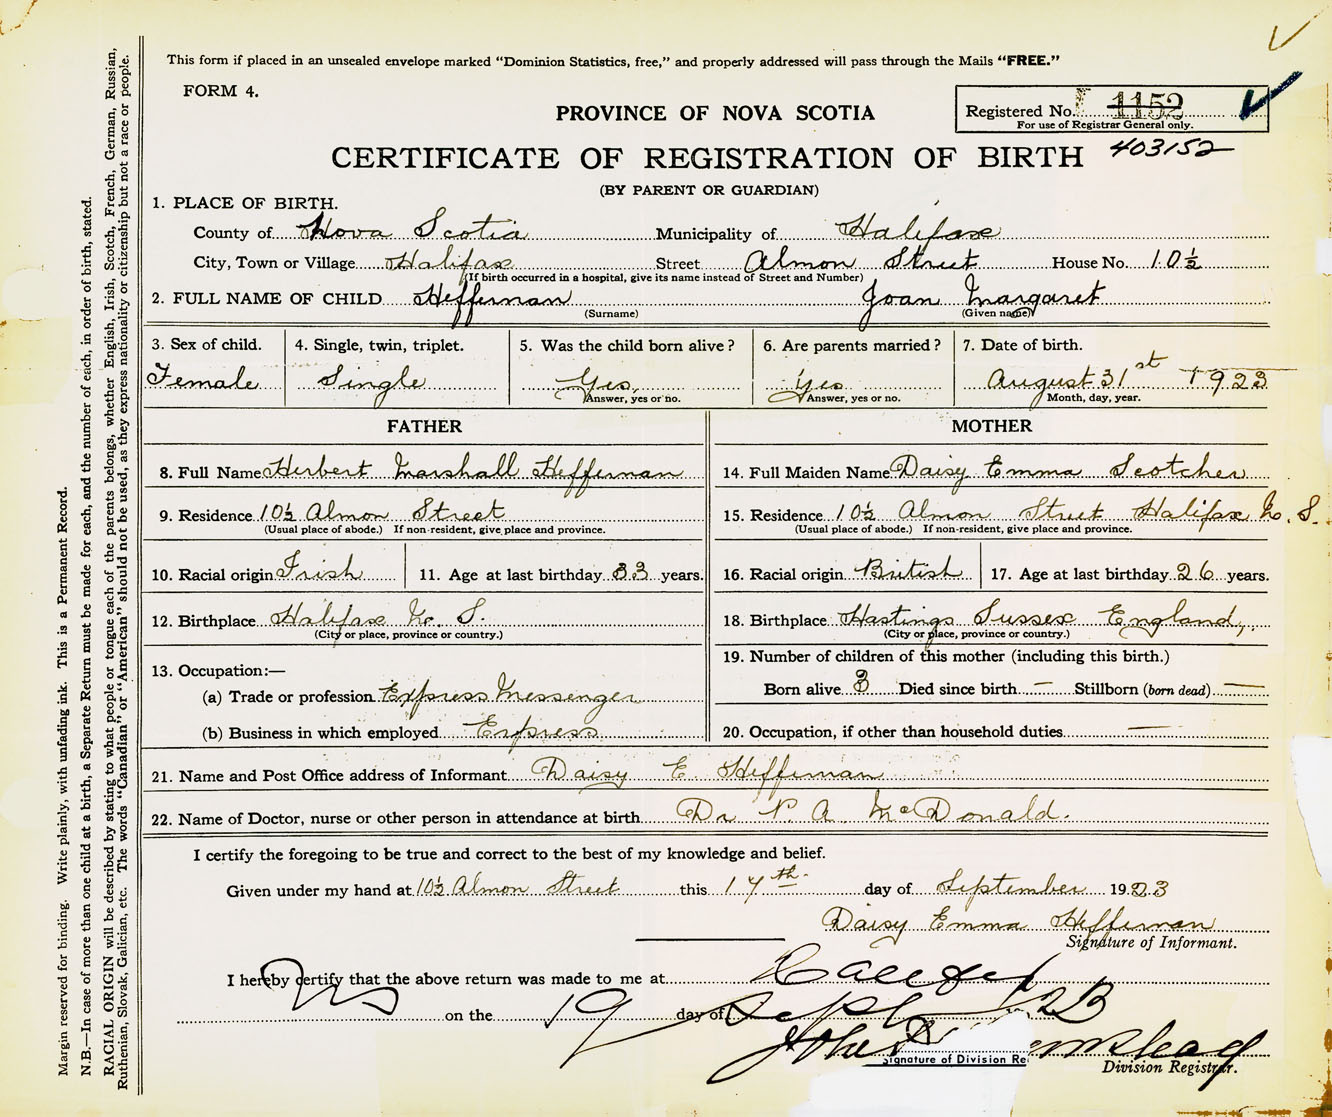 This form if placed in an unsealed envelope marked "Dominion Statistics, free," and properly addressed will pass through the Mails "FREE."
FORM 4.
PROVINCE OF NOVA SCOTIA
Registered No. 1152
For use of Registrar General only.
403152
CERTIFICATE OF REGISTRATION OF BIRTH
(BY PARENT OR GUARDIAN)
1. PLACE OF BIRTH.
County of Nova Scotia Municipality of Halifax
City, Town or Village Halifax Street Almon Street House No. 10½
(If birth occurred in a hospital, give its name instead of Street and Number)
2. FULL NAME OF CHILD Heffernan Joan Margaret
(Surname) (Given name)
3. Sex of child. 4. Single, twin, triplet. 5. Was the child born alive? 6. Are parents married? 7. Date of birth.
Female Single Yes Yes August 31st 1923
Answer, yes or no. Answer, yes or no. Month, day, year.
FATHER MOTHER
8. Full Name Herbert Marshall Heffernan 14. Full Maiden Name Daisy Emma Scotcher
9. Residence 10½ Almon Street 15. Residence 10½ Almon Street Halifax N. S.
(Usual place of abode.) If non-resident, give place and province. (Usual place of abode.) If non-resident, give place and province.
10. Racial origin Irish 11. Age at last birthday 33 years. 16. Racial origin British 17. Age at last birthday 26 years.
12. Birthplace Halifax N. S. 18. Birthplace Hastings Sussex England,
(City or place, province or country.) (City or place, province or country.)
13. Occupation:— 19. Number of children of this mother (including this birth.)
(a) Trade or profession Express Messenger Born alive 3 Died since birth — Stillborn (born dead) —
(b) Business in which employed Express 20. Occupation, if other than household duties —
21. Name and Post Office address of Informant Daisy E. Heffernan
22. Name of Doctor, nurse or other person in attendance at birth Dr P. A. McDonald.
I certify the foregoing to be true and correct to the best of my knowledge and belief.
Given under my hand at 10½ Almon Street this 17th day of September 1923
Daisy Emma Heffernan
Signature of Informant.
I hereby certify that the above return was made to me at Halifax
NS on the 19 day of Sept 1923
John
Signature of Division Re
Division Registrar.
Margin reserved for binding. Write plainly, with unfading ink. This is a Permanent Record.
N.B.—In case of more than one child at a birth, a Separate Return must be made for each, and the number of each, in order of birth, stated.
RACIAL ORIGIN will be described by stating to what people or tongue each of the parents belongs, whether English, Irish, Scotch, French, German, Russian,
Ruthenian, Slovak, Galician, etc. The words "Canadian" or "American" should not be used, as they express nationality or citizenship but not a race or people.